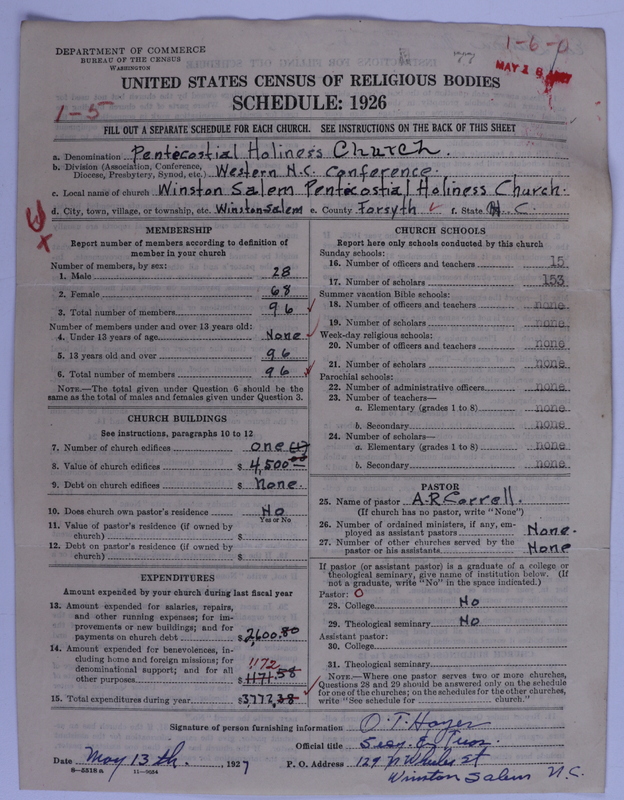 1-6-0
DEPARTMENT OF COMMERCE
BUREAU OF THE CENSUS
WASHINGTON
MAY 18
UNITED STATES CENSUS OF RELIGIOUS BODIES
1-5
SCHEDULE: 1926
FILL OUT A SEPARATE SCHEDULE FOR EACH CHURCH. SEE INSTRUCTIONS ON THE BACK OF THIS SHEET
a. Denomination Pentecostial Holiness Church.
b. Division (Association, Conference, Diocese, Presbytery, Synod, etc.) Western N.C. Conference.
c. Local name of church Winston Salem Pentecostial Holiness Church.
d. City, town, village, or township, etc. Winston-Salem e. County Forsyth f. State N. C.
MEMBERSHIP
Report number of members according to definition of
member in your church
Number of members, by sex:
1. Male 28
2. Female 68
3. Total number of members 96
Number of members under and over 13 years old:
4. Under 13 years of age None
5. 13 years old and over 96
6. Total number of members 96
NOTE.—The total given under Question 6 should be
same as the total of males and females given under Question 3.
CHURCH BUILDINGS
See instructions, paragraphs 10 to 12
7. Number of church edifices one (1)
8. Value of church edifices $ 4,500.00
9. Debt on church edifices $ None.
10. Does church own pastor's residence No
Yes or No
11. Value of pastor's residence (if owned by
church) $
12. Debt on pastor's residence (if owned by
church) $
EXPENDITURES
Amount expended by your church during last fiscal year
13. Amount expended for salaries, repairs,
and other running expenses; for im-
provements or new buildings; and for
payments on church debt $2,600.80
14. Amount expended for benevolences, in-
cluding home and foreign missions; for
denominational support; and for all 1172
other purposes $1171.58
15. Total expenditures during year $3772.38
CHURCH SCHOOLS
Report here only schools conducted by this church
Sunday schools:
16. Number of officers and teachers 15
17. Number of scholars 153
Summer vacation Bible schools:
18. Number of officers and teachers none
19. Number of scholars none
Week-day religious schools:
20. Number of officers and teachers none
21. Number of scholars none
Parochial schools:
22. Number of administrative officers none
23. Number of teachers—
a. Elementary (grades 1 to 8) none
b. Secondary none
24. Number of scholars—
a. Elementary (grades 1 to 8) none
b. Secondary none
PASTOR
25. Name of pastor A.R. Correll.
(If church has no pastor, write "None")
26. Number of ordained ministers, if any, em-
ployed as assistant pastors None.
27. Number of other churches served by the
pastor or his assistants None
If pastor (or assistant pastor) is a graduate of a college or
theological seminary, give name of institution below. (If
not a graduate, write "No" in the space indicated.)
Pastor: 0
28. College No
29. Theological seminary No
Assistant pastor:
30. College
31. Theological seminary
NOTE.—Where one pastor serves two or more churches,
Questions 28 and 29 should be answered only on the schedule
for one of the churches; on the schedules for the other churches,
write "See schedule for church."
Signature of person furnishing information O. T. Hayes
Official title Secy. & Treas.
Date May 13th. , 1927 P. O. Address 129 N Wheeler St
8-5318 a 11-9034 Winston Salem N.C.